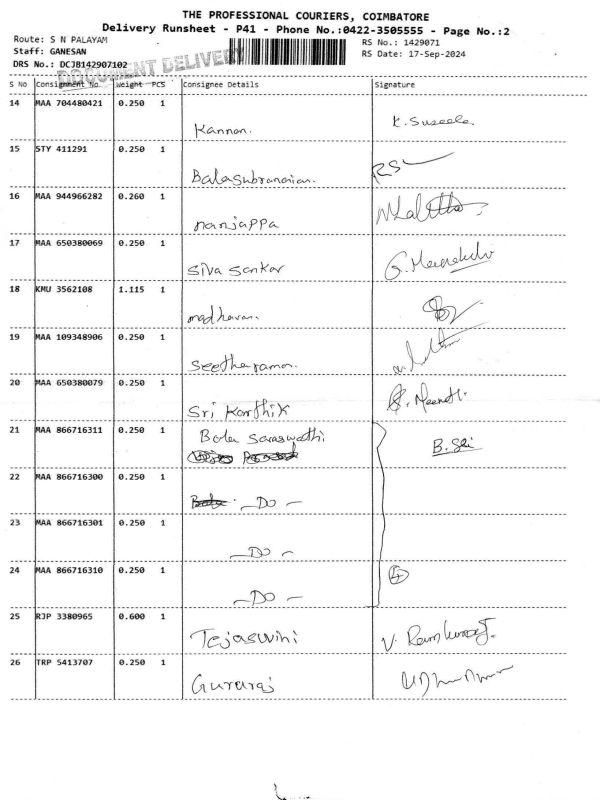 THE PROFESSIONAL COURIERS, COIMBATORE
Delivery Runsheet - P41 - Phone No.:0422-3505555 - Page No.:2
Route: S N PALAYAM
RS No.: 1429071
Staff: GANESAN
RS Date: 17-Sep-2024
DRS No.: DCJB142907102
DOCUMENT DELIVERY
S No Consignment No. Weight PCS Consignee Details Signature
14 MAA 704480421 0.250 1
Kannan. K. Suseela
15 STY 411291 0.250 1
Balasubramanian.
16 MAA 944966282 0.260 1
nanjappa
17 MAA 650380069 0.250 1
Siva Sankar
18 KMU 3562108 1.115 1
madhavan.
19 MAA 109348906 0.250 1
Seetharaman.
20 MAA 650380079 0.250 1
Sri Karthik
21 MAA 866716311 0.250 1
Bala Saraswathi B. Sri
22 MAA 866716300 0.250 1
-DO-
23 MAA 866716301 0.250 1
-DO-
24 MAA 866716310 0.250 1
4
-DO-
25 RJP 3380965 0.600 1
Tejaswini
26 TRP 5413707 0.250 1
Gururaj